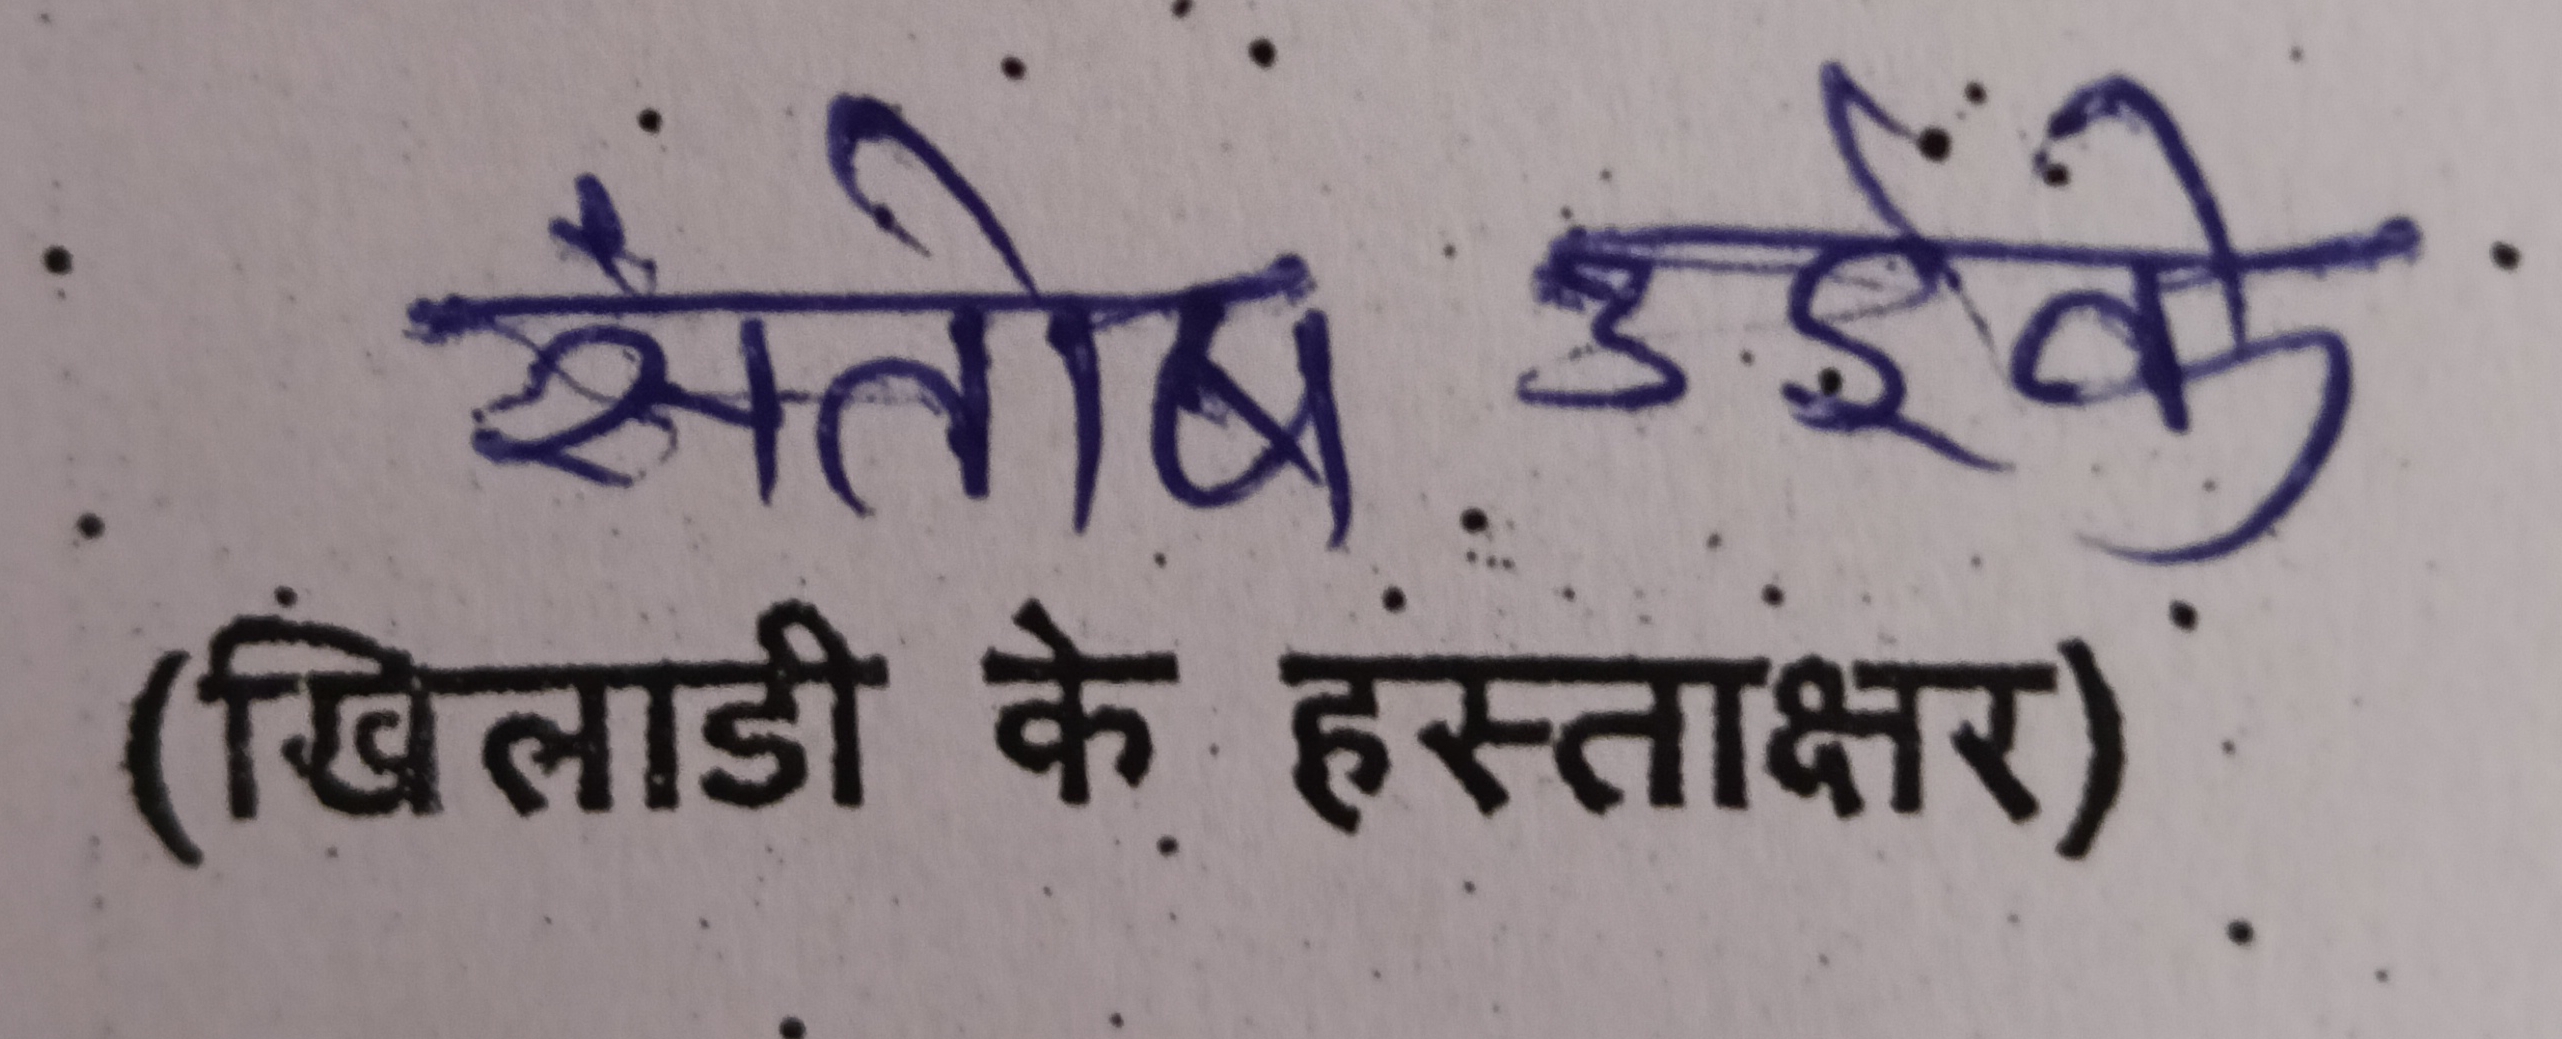 संतोष उईके
(खिलाडी के हस्ताक्षर)